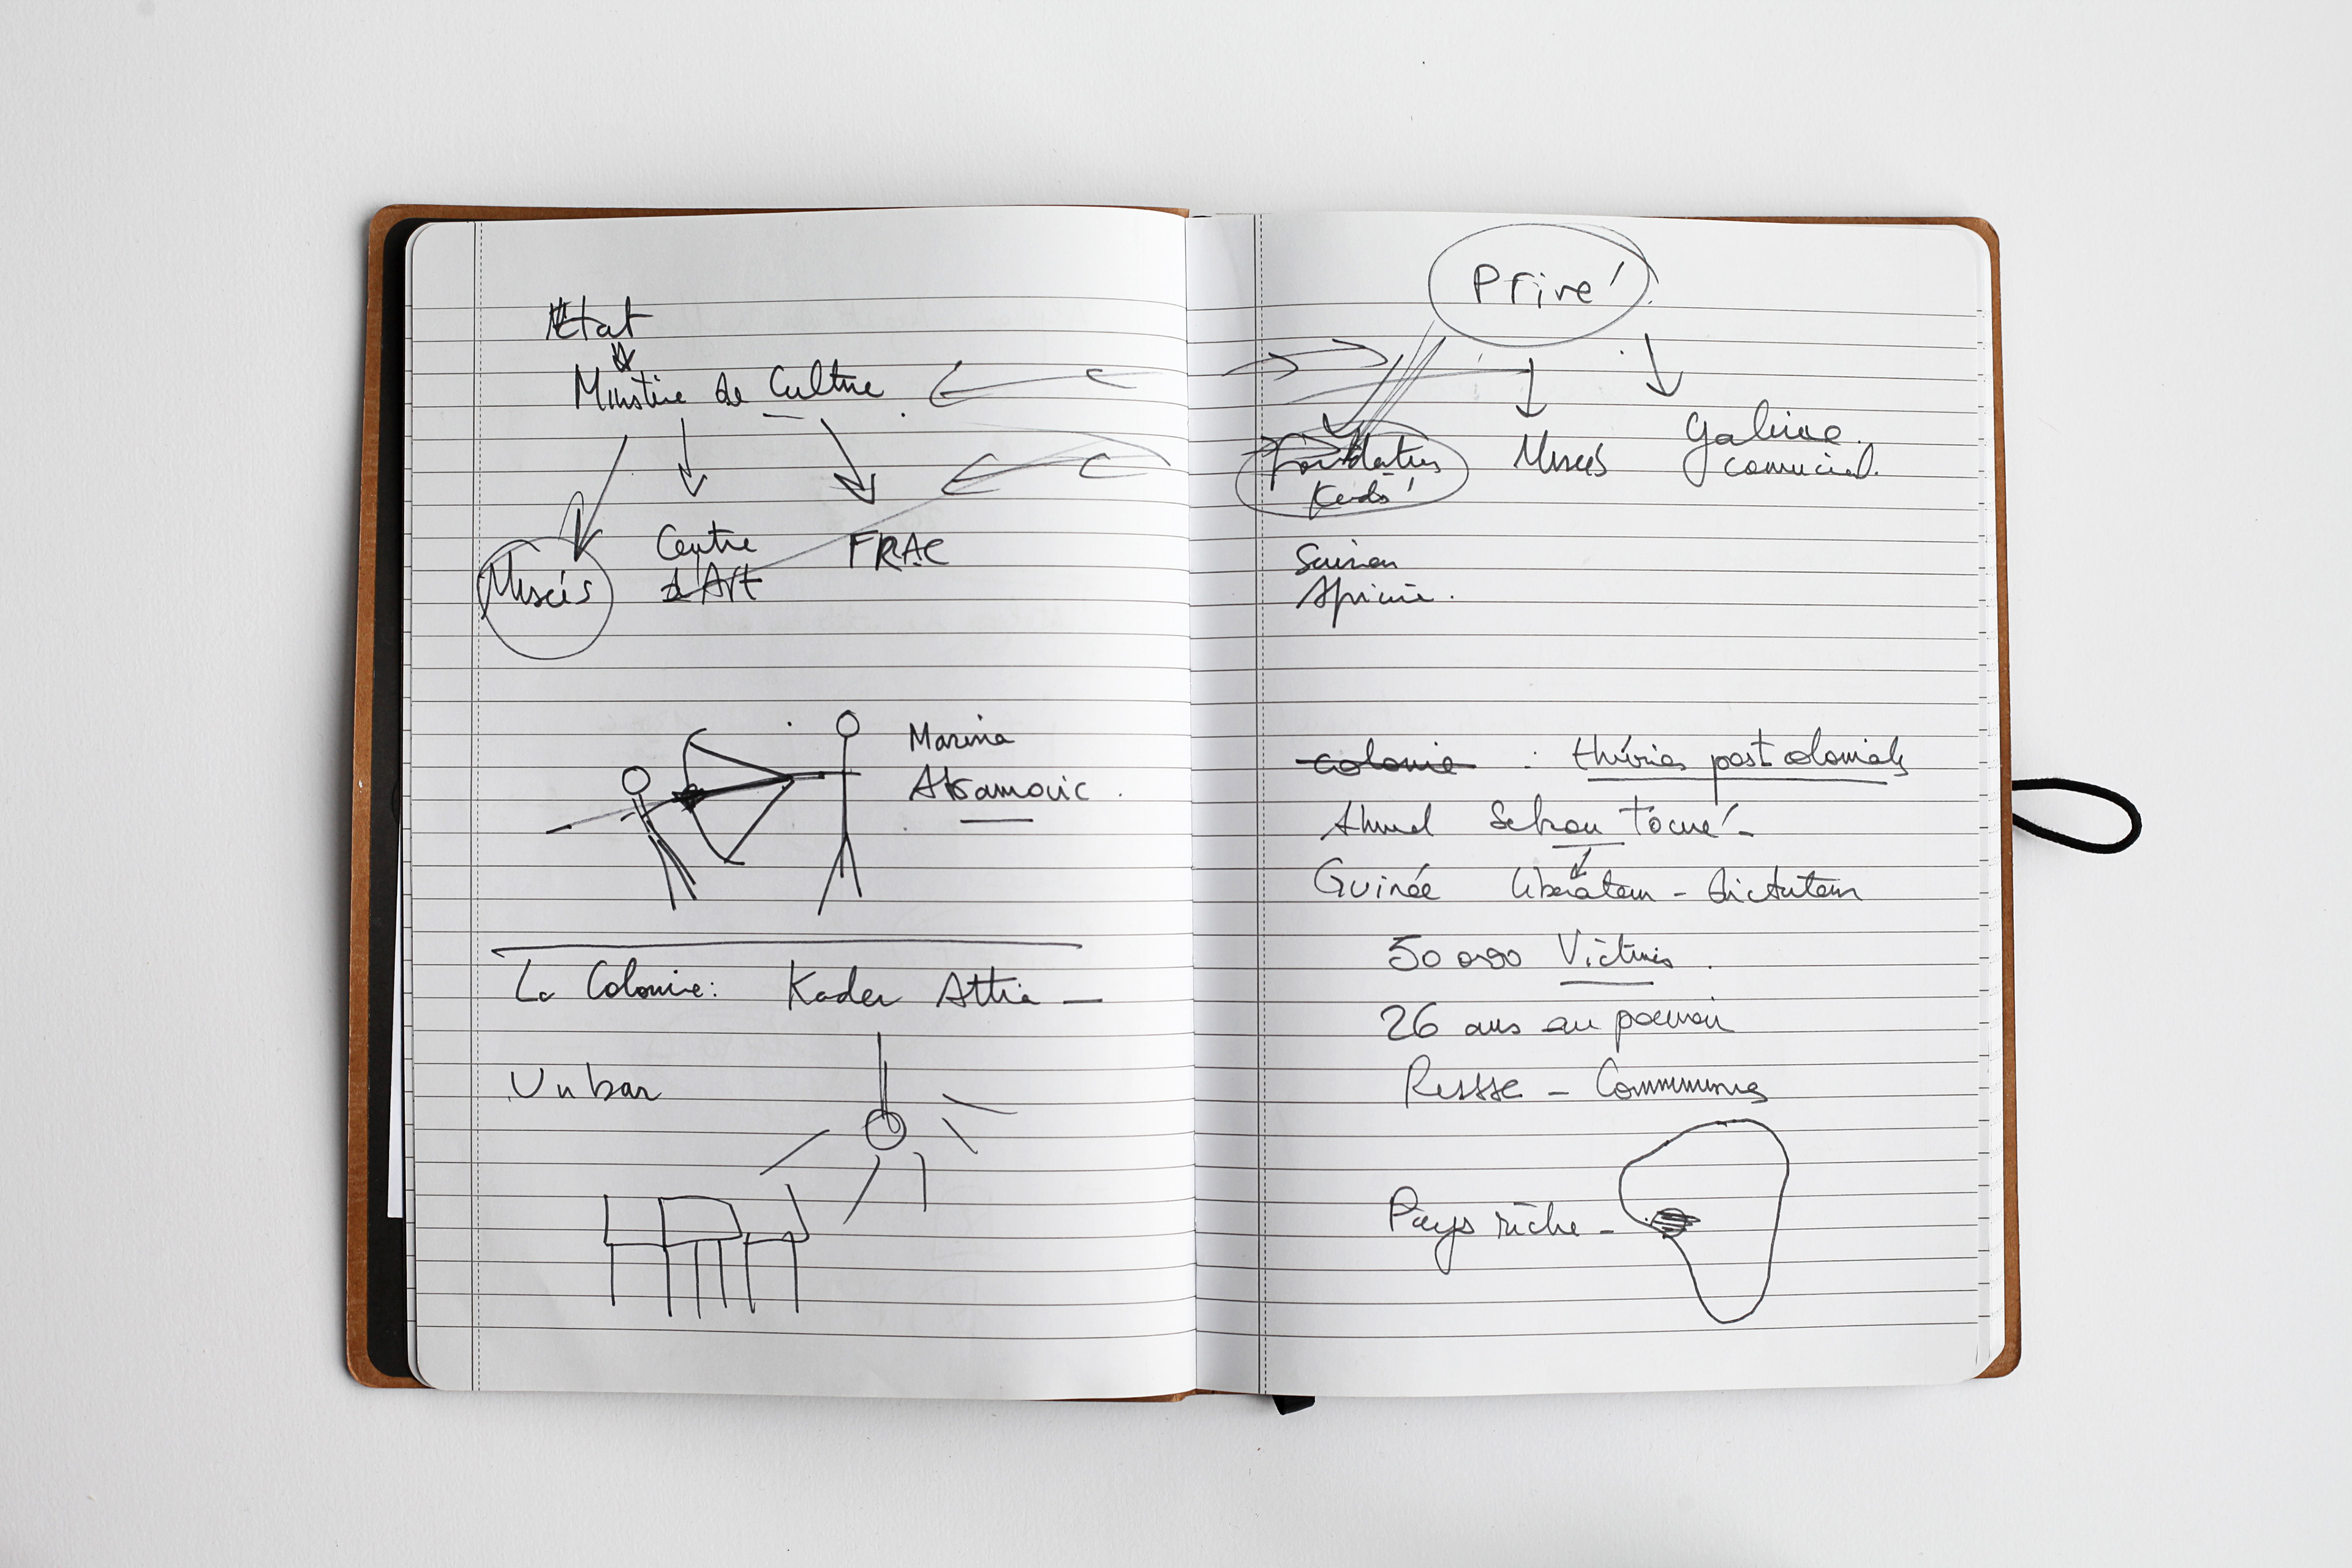 Etat
Ministère de Culture
Musées
Centre
d'Art
FRAC
Marina
Abramovic
La Colonie: Kader Attia —
Un bar
Privé
Musées
Galerie
commercial.
Saison
colonie : théories post colonials
Ahmed Sekou Touré -
Guinée libérateur - dictateur
50 000 Victimes
26 ans au pouvoir
Russe - Communis
Pays riche -